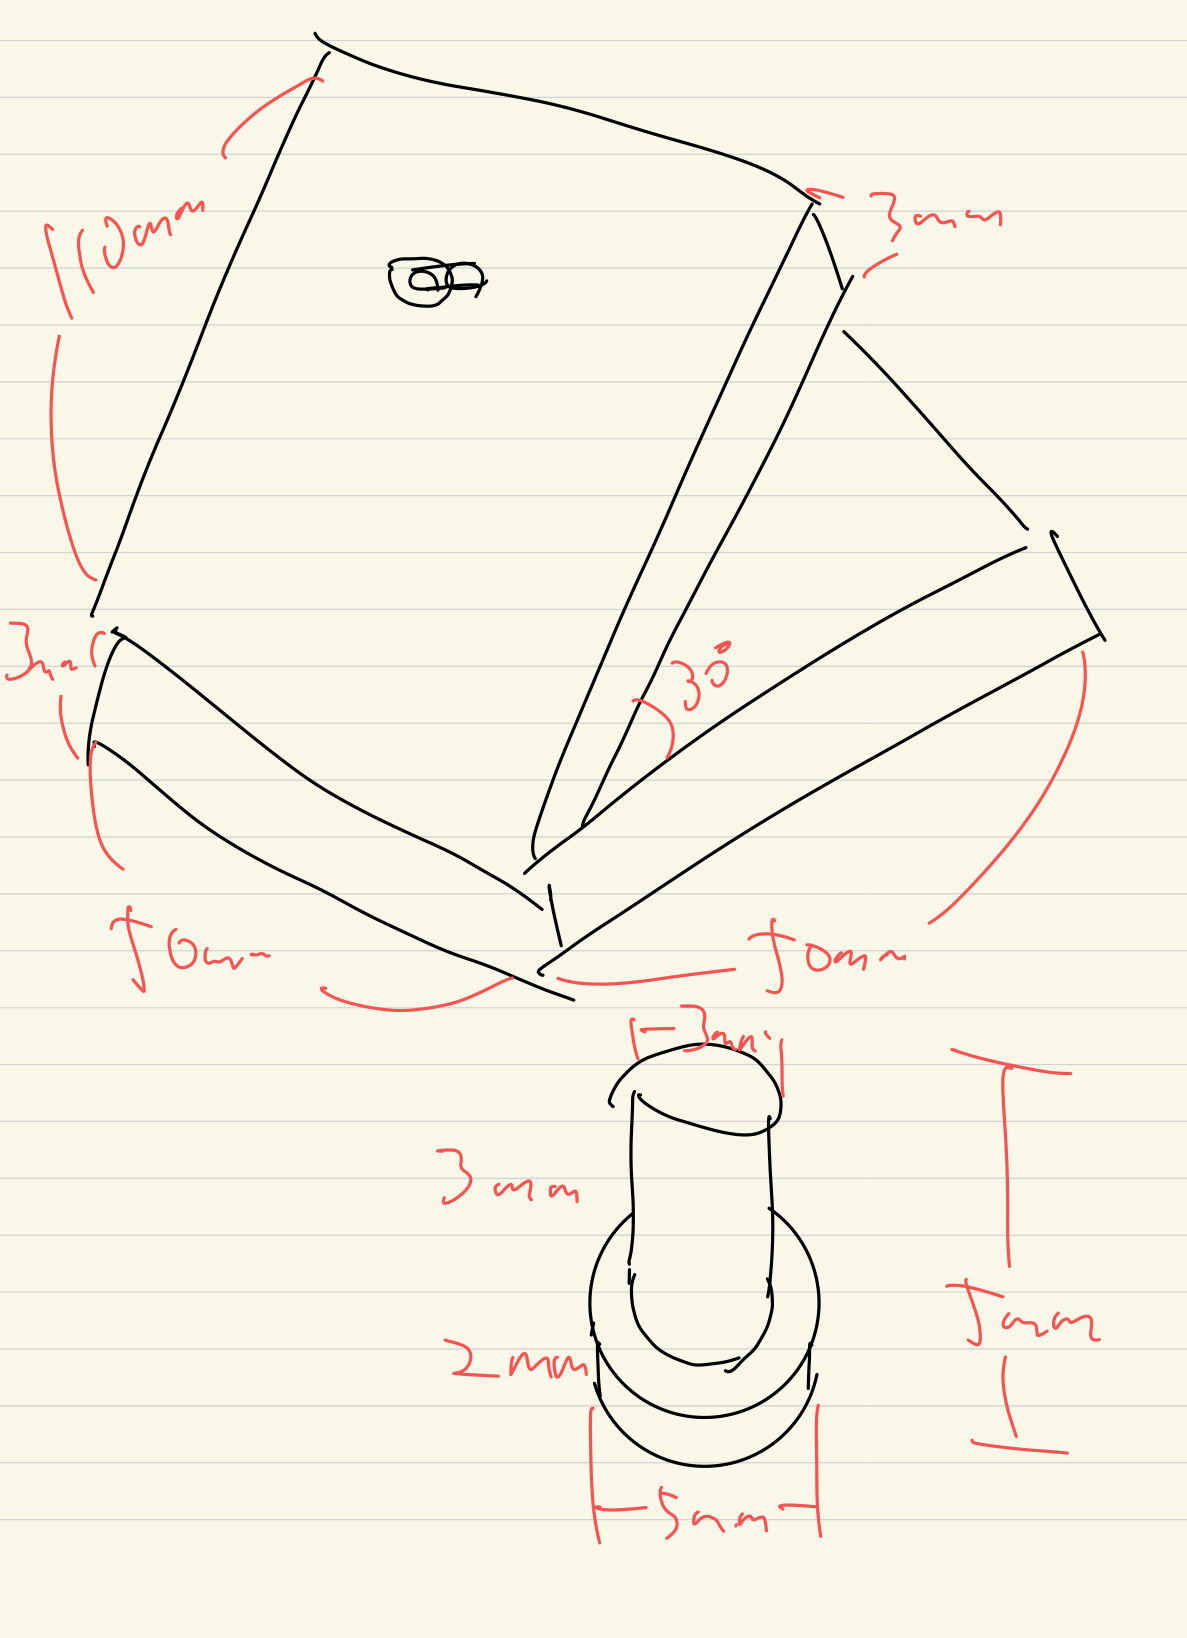 110mm
3mm
3mm
30°
50mm
50mm
3mm
3mm
5mm
2mm
5mm